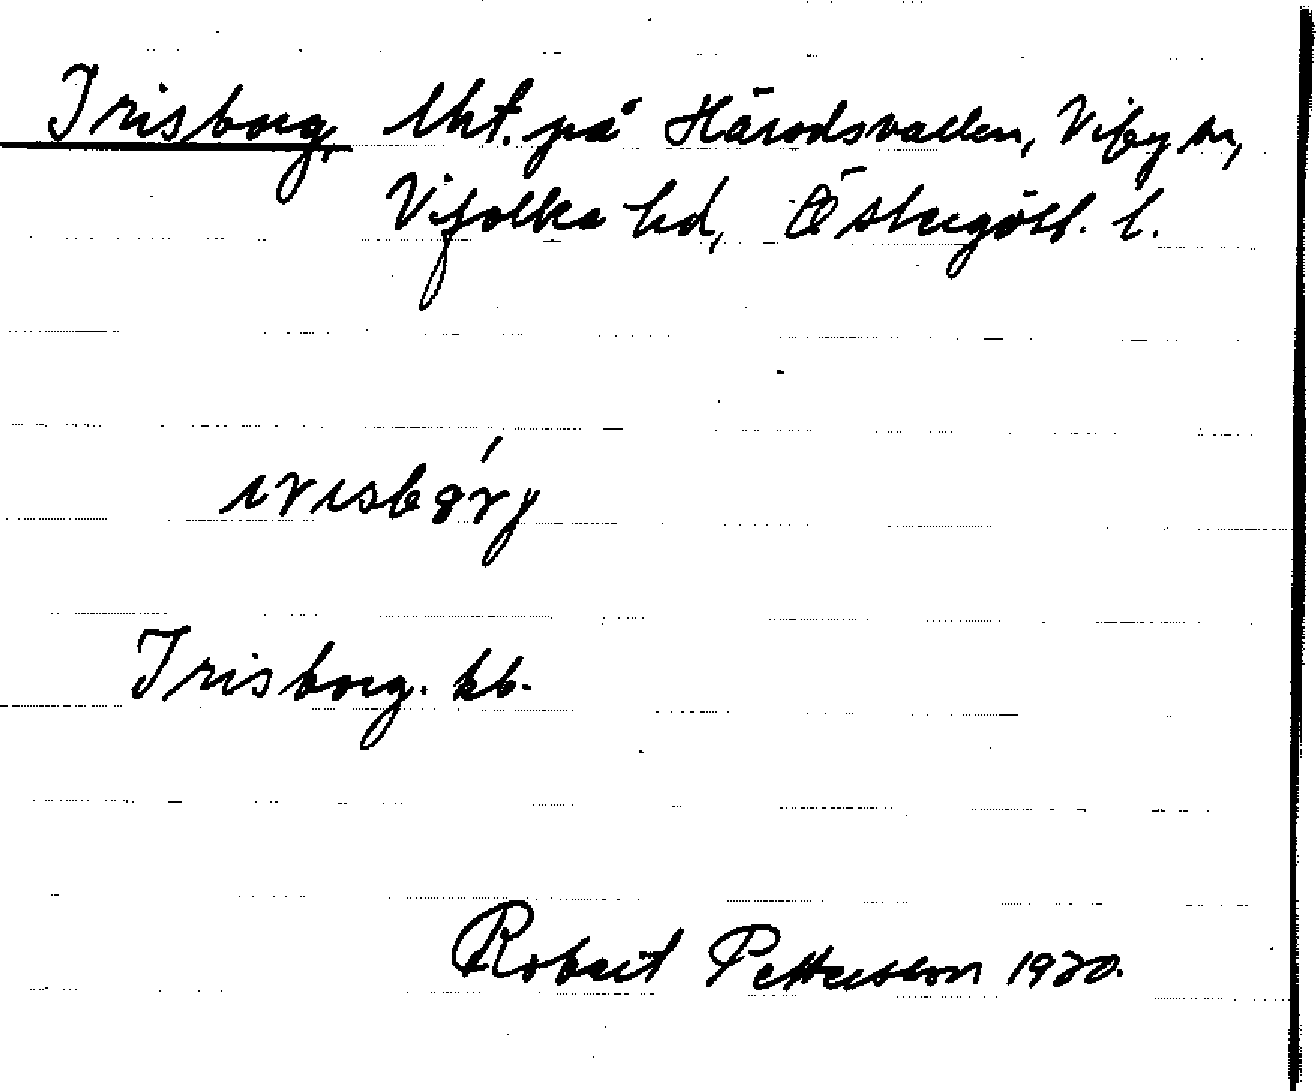 Irisborg, lht. på Härodsvallen, Viby sn,
Vifolka hd, Östergötl. l.
irisbǫrg
Irisborg. kb.
Robert Pettersson 1920.